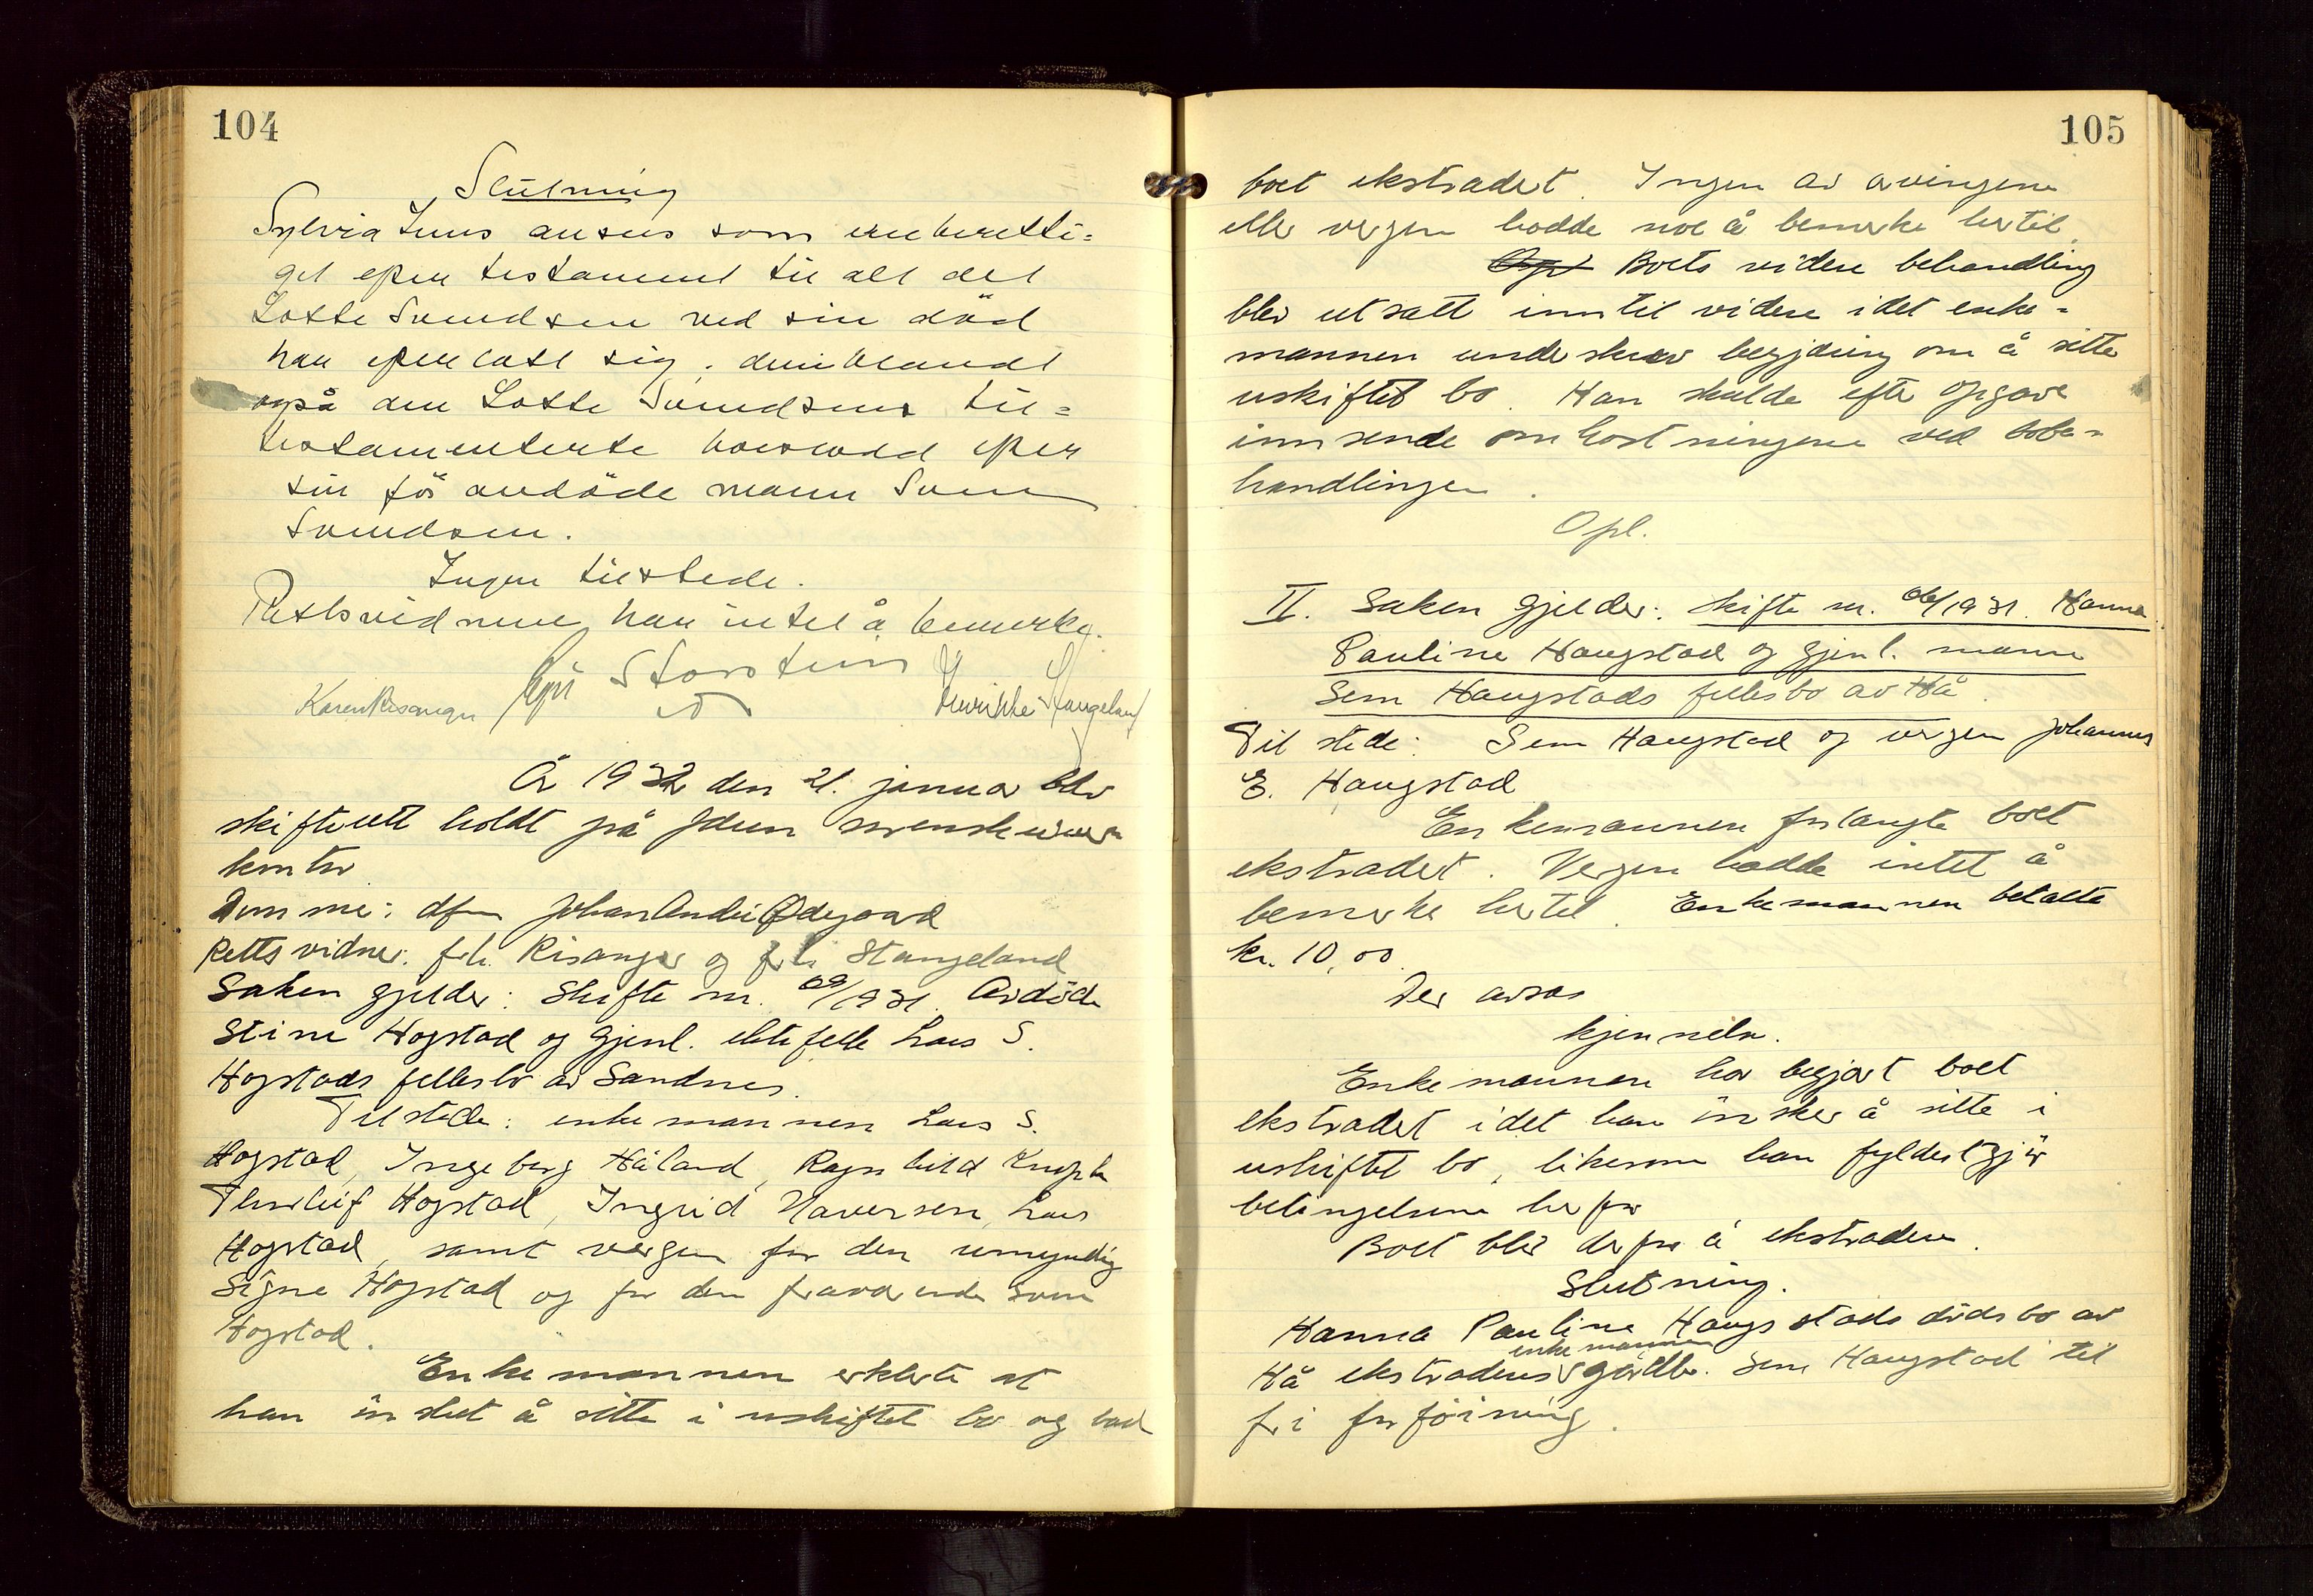 104
Slutning
Sylvia Juus ansees som eneberetti=
get efter testament til alt det
Lotte Svendsen ved sin död
har efterlatt sig, deriblandt
også den Lotte Svendsens til=
testamenterte boeslodd efter
sin før avdöde mann Sven
Svendsen.
Ingen tilstede.
Rettsvidnene har intet å bemerke.
Storstein
Karen Risanger
Stangeland
År 1932 den 21. januar blev
skifterett holdt på Jæren sorenskriver-
kontor
Dommer: dfm Johan André Ødegaard
Rettsvidner: frk. Risanger og frk. Stangeland
Saken gjelder: Skifte nr. 69/1931. Avdöde
Stine Hogstad og gjenl. ektefelle Lars S.
Hogstads fellesbo av Sandnes.
Tilstede: enkemannen Lars S.
Hogstad, Ingeborg Håland, Ragnhild
Thorleif Hogstad, Ingrid Haversen, Lars
Hogstad, samt vergen for den umyndig
Signe Hogstad og for den fraværende Sven
Hogstad.
Enkemannen erklærte at
han önsket å sitte i uskiftet bo og bad
105
boet ekstradert. Ingen av arvingene
eller vergen hadde noe å bemerke hertil.
Boets videre behandling
blev utsatt inntil videre idet enke=
mannen underskrev begjæring om å sitte
uskiftet bo. Han skulde efter opgave
innsende omkostningene ved bobe=
handlingen.
Opl.
II. Saken gjelder: skifte nr. 66/1931. Hanna
Pauline Haugstad og gjenl. mann
Sem Haugstads fellesbo av Hå.
Til stede: Sem Haugstad og vergen Johannes
E. Haugstad
Enkemannen forlangte boet
ekstradert. Vergen hadde intet å
bemerke hertil. Enkemannen betalte
kr. 10,00.
Der avsas
kjennelse.
Enkemannen har begjært boet
ekstradert idet han önsker å sitte i
uskiftet bo, likesom han fyldestgjör
betingelsene herfor
Boet blir derfor å ekstradere.
Slutning.
Hanna Pauline Haugstads dödsbo av
enkemannen
Hå ekstraderes gårdbr. Sem Haugstad til
fri forföining.